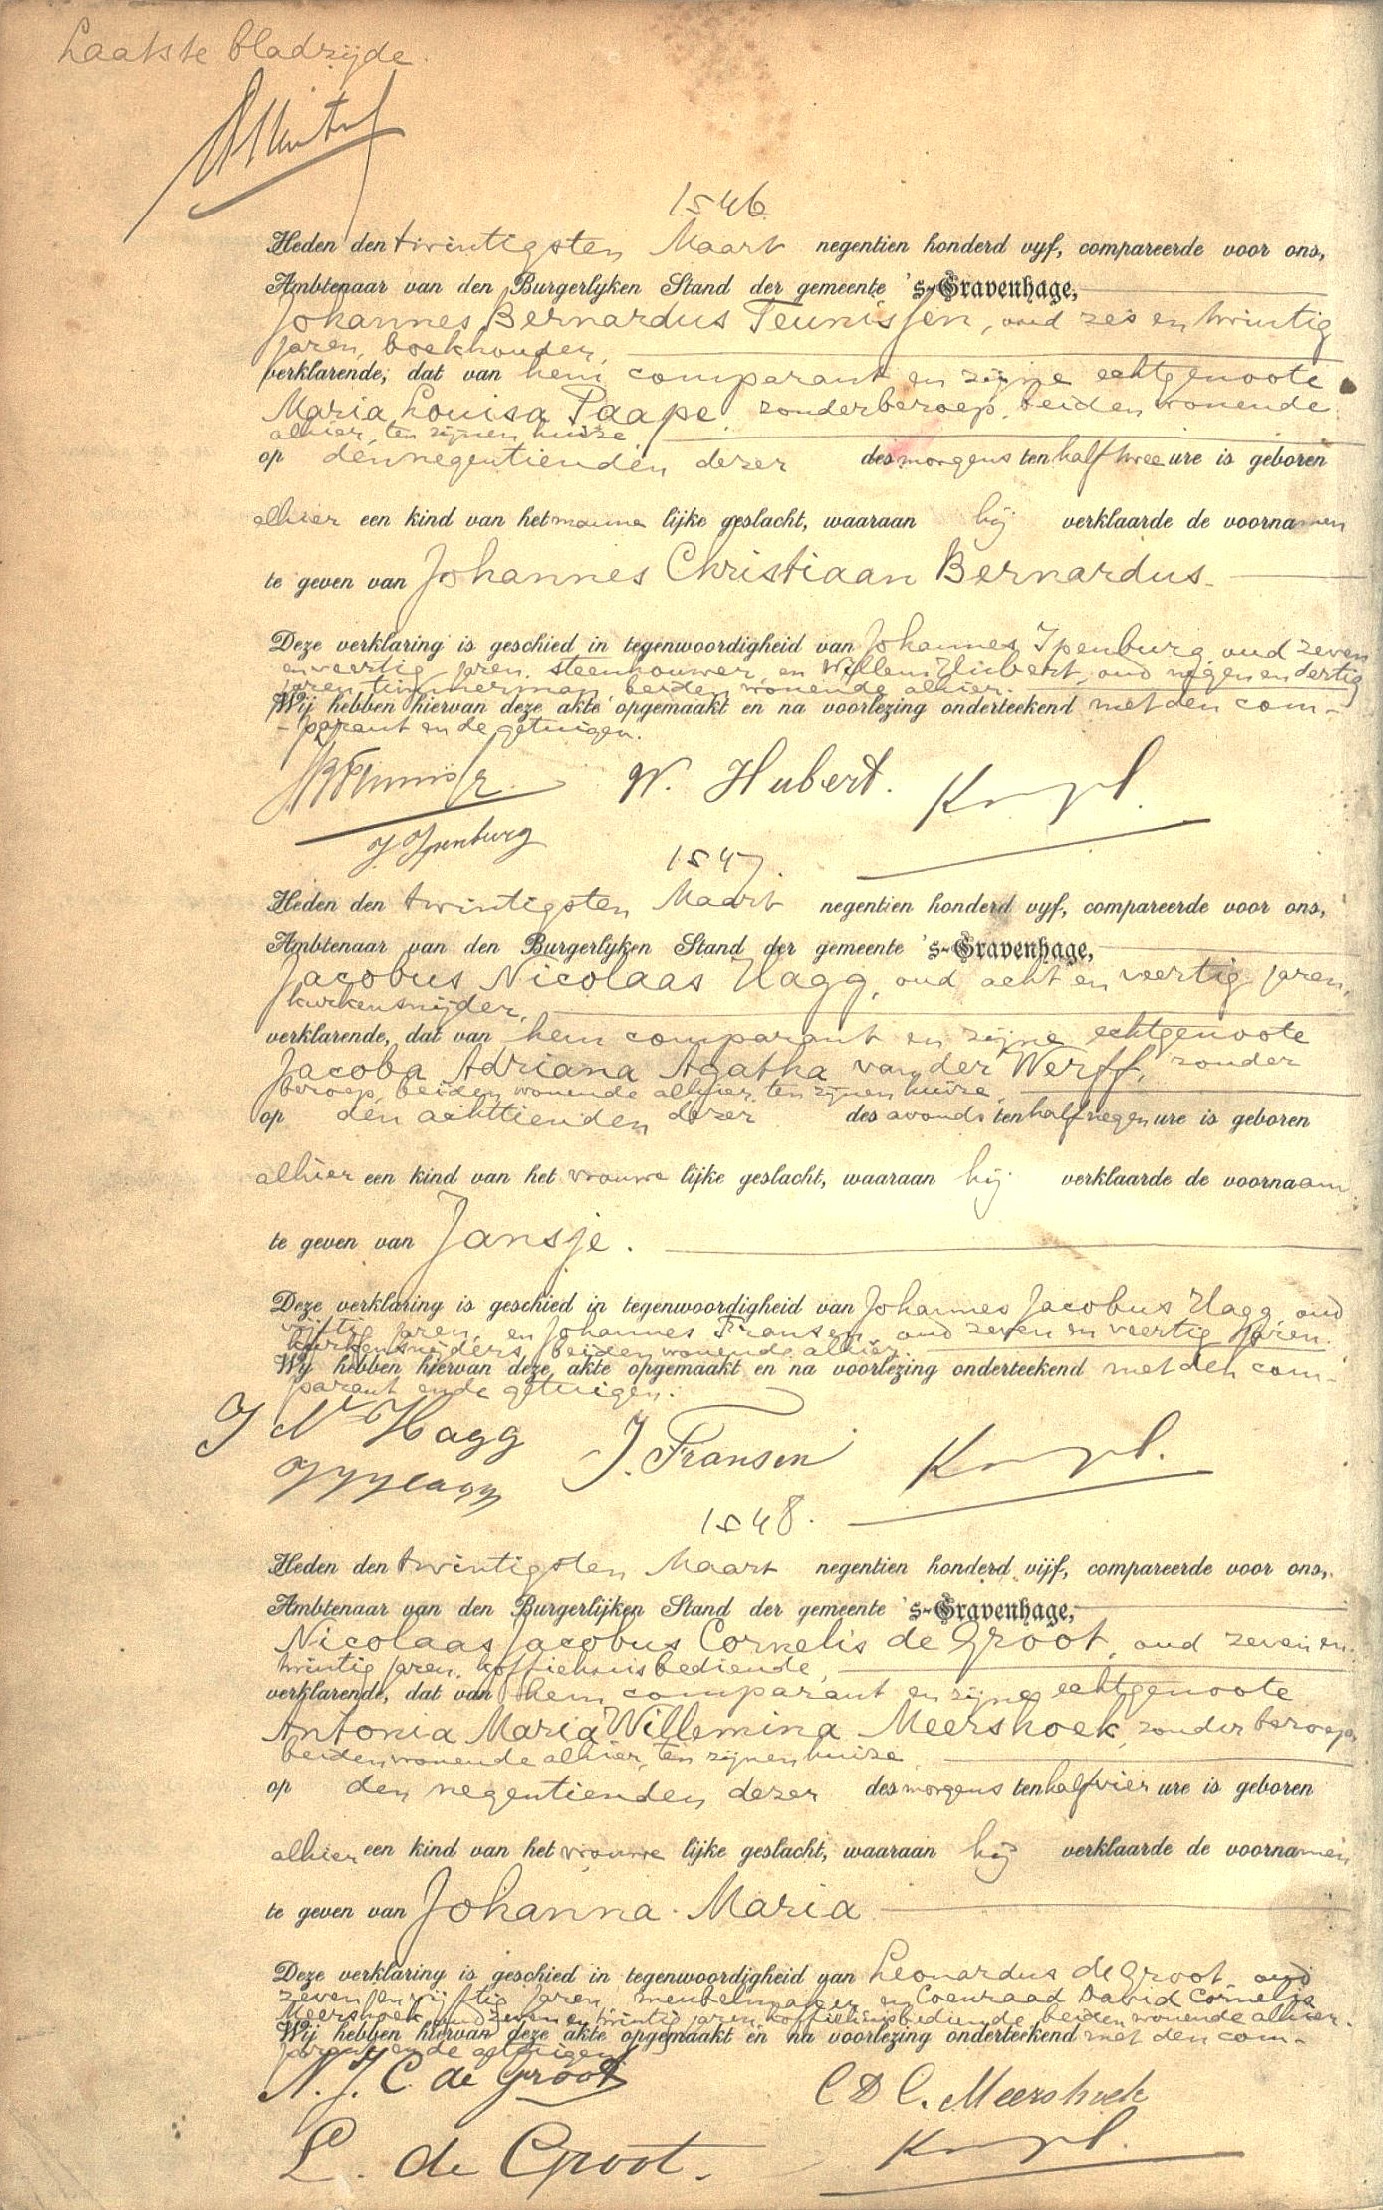 Laatste bladzijde.
1546
Heden den twintigsten Maart negentien honderd vyf, compareerde voor ons,
Ambtenaar van den Burgerlyken Stand der gemeente 's-Gravenhage,
Johannes Bernardus Teunissen, oud zes en twintig
jaren, boekhouder,
verklarende, dat van hem comparant en zijne echtgenoote
Maria Louisa Paape, zonder beroep, beiden wonende
alhier, ten zijnen huize,
op den negentienden dezer des morgens ten half twee ure is geboren
alhier een kind van het manne lijke geslacht, waaraan hij verklaarde de voornamen
te geven van Johannes Christiaan Bernardus.
Deze verklaring is geschied in tegenwoordigheid van Johannes Ipenburg, oud zeven
en veertig jaren, steenhouwer, en Willem Hubert, oud negen en dertig
jaren, timmerman, beiden wonende alhier.
Wij hebben hiervan deze akte opgemaakt en na voorlezing onderteekend met den com-
-parant en de getuigen.
W. Hubert.
J. Ipenburg
1547
Heden den twintigsten Maart negentien honderd vyf, compareerde voor ons,
Ambtenaar van den Burgerlyken Stand der gemeente 's-Gravenhage,
Jacobus Nicolaas Hagg, oud acht en veertig jaren,
kurkensnijder,
verklarende, dat van hem comparant en zijne echtgenoote
Jacoba Adriana Agatha van der Werff, zonder
beroep, beiden wonende alhier, ten zijnen huize,
op den achttienden dezer des avonds ten half negen ure is geboren
alhier een kind van het vrouwe lijke geslacht, waaraan hij verklaarde de voornaam
te geven van Jansje.
Deze verklaring is geschied in tegenwoordigheid van Johannes Jacobus Hagg, oud
vijftig jaren, en Johannes Fransen, oud zeven en veertig jaren,
kurkensnijders, beiden wonende alhier.
Wy hebben hiervan deze akte opgemaakt en na voorlezing onderteekend met den com-
parant en de getuigen.
J N Hagg J. Fransen
JJHagg
1548.
Heden den twintigsten Maart negentien honderd vijf, compareerde voor ons,
Ambtenaar van den Burgerlijken Stand der gemeente 's-Gravenhage,
Nicolaas Jacobus Cornelis de Groot, oud zeven en
twintig jaren, koffiehuisbediende,
verklarende, dat van hem comparant en zijne echtgenoote
Antonia Maria Willemina Meershoek, zonder beroep,
beiden wonende alhier, ten zijnen huize
op den negentienden dezer des morgens ten half vier ure is geboren
alhier een kind van het vrouwe lijke geslacht, waaraan hij verklaarde de voornamen
te geven van Johanna Maria
Deze verklaring is geschied in tegenwoordigheid van Leonardus de Groot, oud
zeven en vijftig jaren, meubelmaker en Coenraad David Cornelis
Meershoek, oud zeven en twintig jaren, koffiehuisbediende, beiden wonende alhier.
Wij hebben hiervan deze akte opgemaakt en na voorlezing onderteekend met den com-
parant en de getuigen.
N. J. C. de Groot C D C. Meershoek
L. de Groot.